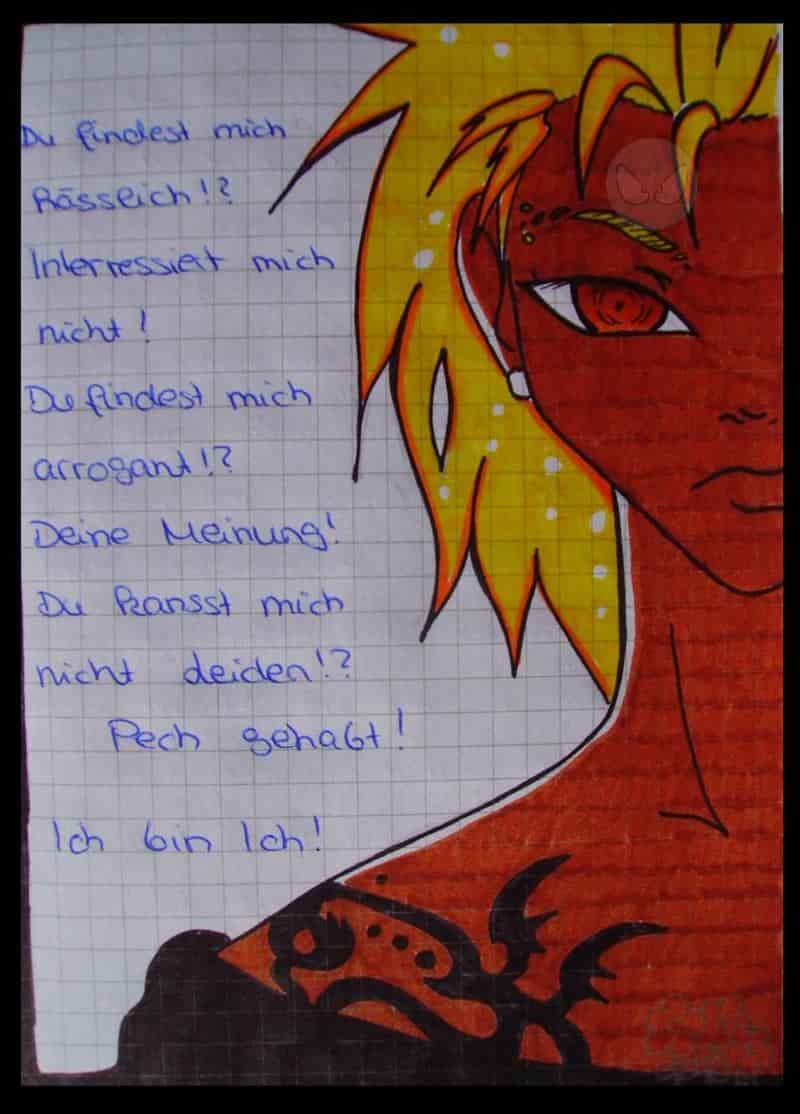 Du findest mich
hässlich!?
Interressiert mich
nicht!
Du findest mich
arrogant!?
Deine Meinung!
Du kansst mich
nicht leiden!?
Pech gehabt!
Ich bin Ich!